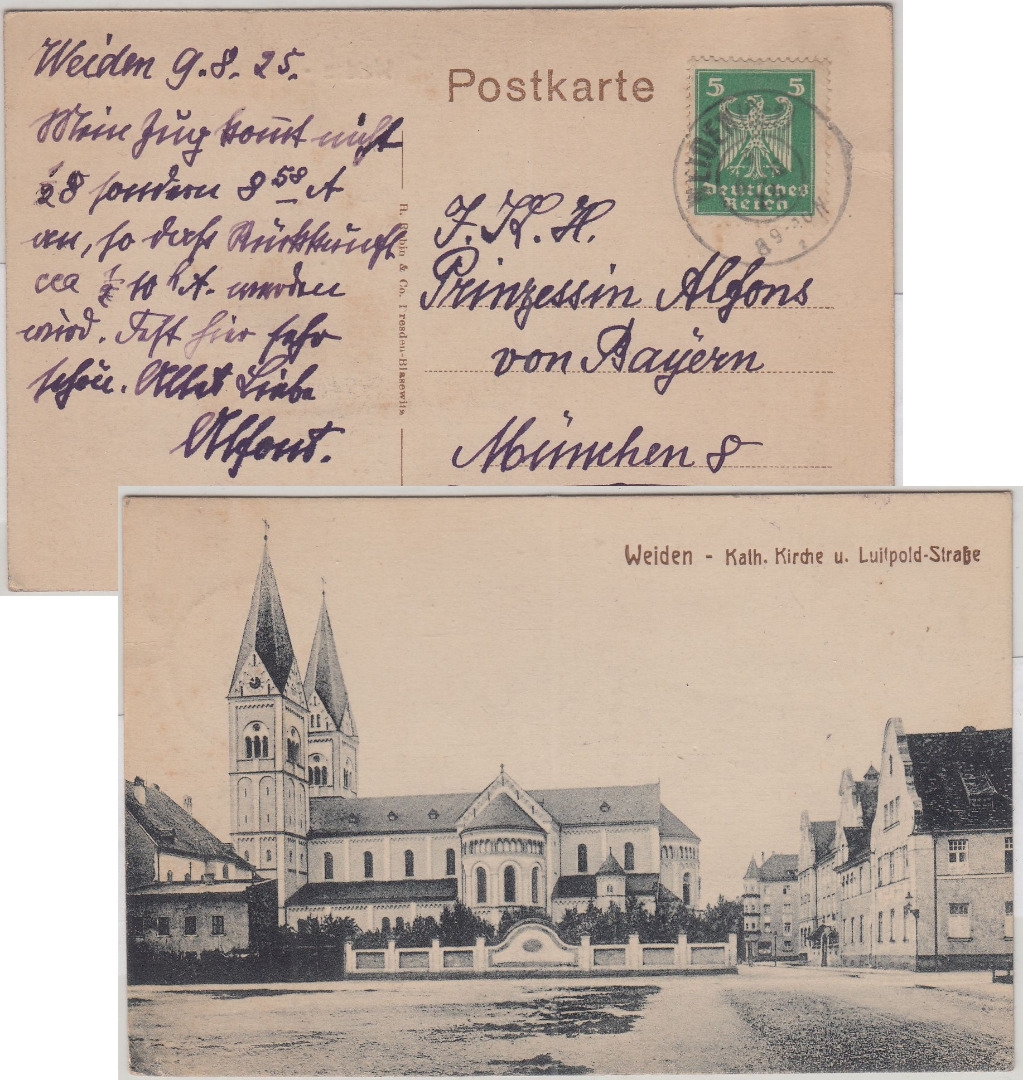 Weiden 9.8.25.
Mein Zug kommt nicht
½8 sondern 8 58 A
an, so daß Rückkunft
cca ½10 h A. werden
wird. Fest hier sehr
schön. Alles Liebe
Alfons.
Postkarte
5 5
Deutsches
Reich
WEIDEN
8 9-10N
R. Rubin & Co. Dresden-Blasewitz
I. K. H.
Prinzessin Alfons
von Bayern
München 8
Weiden - Kath. Kirche u. Luitpold-Straße